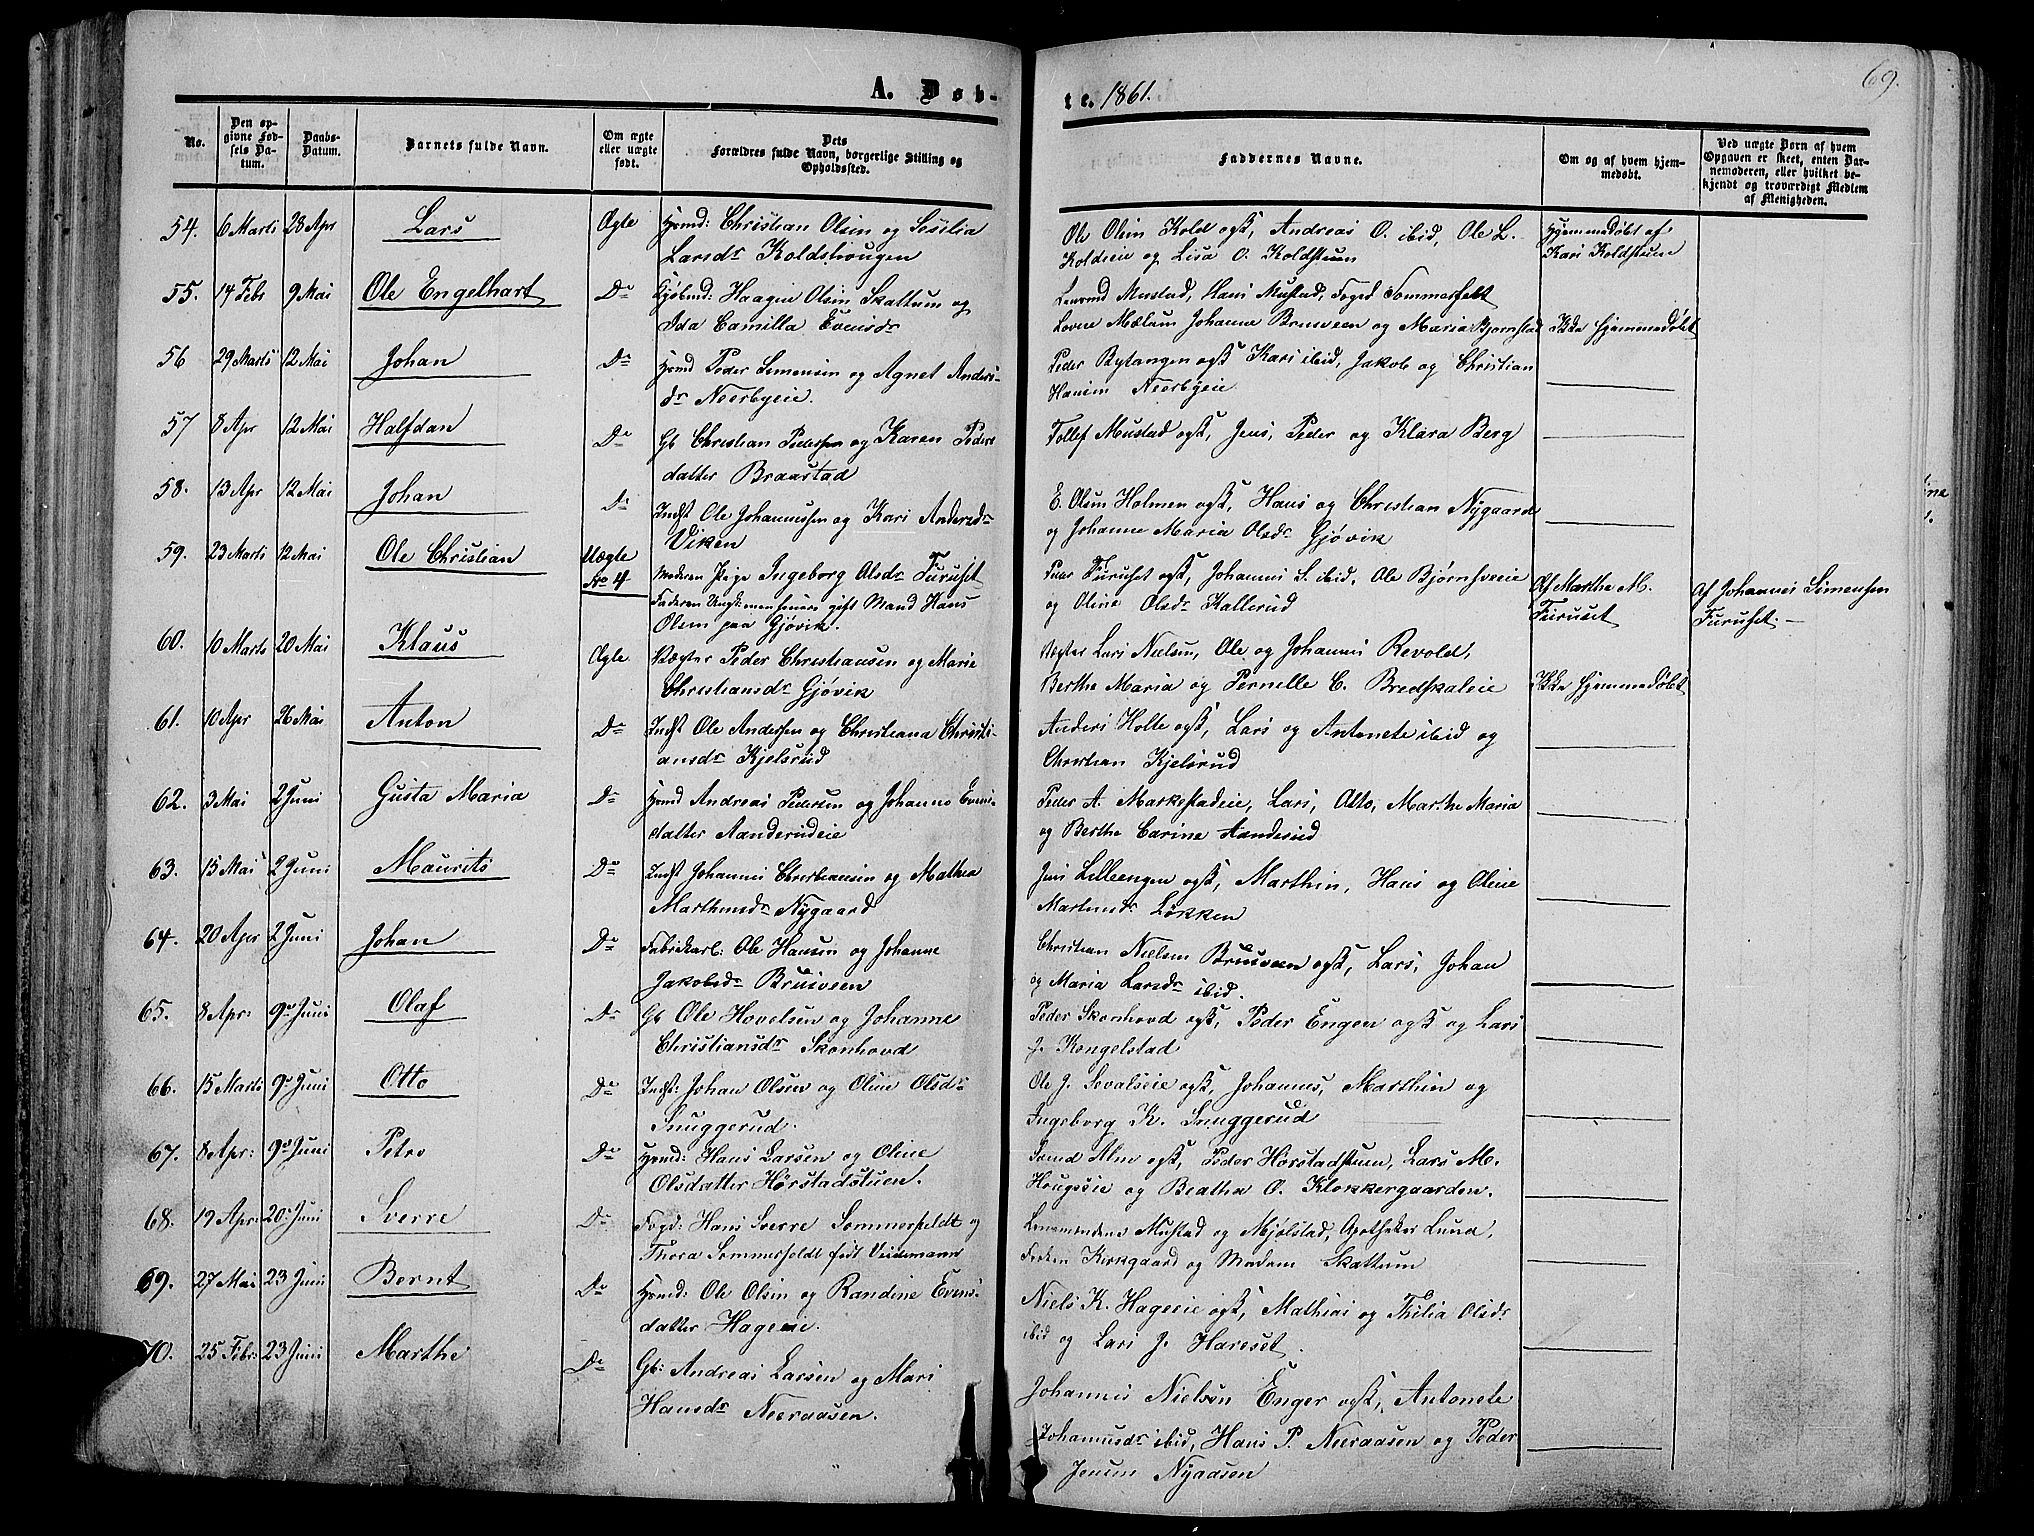 69.
A. Døb-
te. 1861.
No.
Den op-
givne Fød-
sels Da-
tum.
Daabs-
Datum.
Barnets fulde Navn.
Om ægte
eller uægte
født.
Dets
Forældres fulde Navn, borgerlige Stilling og
Opholdssted.
Faddernes Navne.
Om og af hvem hjem-
medøbt.
Ved uægte Børn af hvem
Opgaven er skeet, enten Bar-
nemoderen, eller hvilket be-
kjendt og troværdigt Medlem
af Menigheden.
54. 6 Marts 28 Apr Lars Ægte Hjmd: Christian Olsen og Sesilia
Larsdr Koldstrougen
Ole Olsen Kold ogß, Andreas O. ibid, Ole L.
Koldseie og Lisa O. Koldstuen
Hjemmedøbt af
Kari Koldstuen
55. 14 Febr 9 Mai Ole Engelhart Do Haagen Olsen Skattum og
Ida Camilla Evensdr
Lensmd Mustad, Hans Mustad, Foged Sommerfelt
Lovise Mælum Johanne Brusveen og Maria Bjørnstad
Ikke hjemmedøbt
56 29 Marts 12 Mai Johan Do Hjmd Peder Simensen og Agnet Anders-
dr Neerbyeie.
Peder Bylangen ogß Kari ibid, Jakob og Christian
Hansen Neerbyeie
57 8 Apr 12 Mai Halfdan Do Gb Christian Pedersen og Karen Peders
datter Braastad
Tollef Mustad ogß, Jens, Peder og Klara Berg
58. 13 Apr 12 Mai Johan Do Indst Ole Johannessen og Kari Andersdr
Viken
E. Olsen Holmen ogß, Hans og Christian Nygaard
og Johanne Maria Olsdr Gjøvik
59. 23 Marts 12 Mai Ole Christian Uægte
No 4
Moderen Pige Ingeborg Olsdr Furuset
Faderen Ungk: men senere gift Mand Hans
Olsen paa Gjøvik.
Peder Furuset ogß, Johannes S. ibid, Ole Bjørnsveeie
og Oline Olsdr Kallerud
Af Marthe M.
Furuset
Af Johannes Simensen
Furuset. —
60. 10 Marts 20 Mai Klaus Ægte Vægter Peder Christiansen og Marie
Christiansdr Gjøvik
Vægter Lars Nielsen, Ole og Johannes Revold,
Berthe Maria og Pernelle C. Bredskaleie
Ikke hjemmedøbt
61. 10 Apr 26 Mai Anton Do Indst Ole Andersen og Christiana Christi-
ansdr Kjelsrud
Anders Holte ogß, Lars og Antonete ibid og
Christian Kjelsrud
62. 3 Mai 2 Juni Gusta Maria Do Hjmd Andreas Pedersen og Johanne Evens-
datter Aanderudeie
Peder A. Markestadeie, Lars, Otto, Marthe Maria
og Berthe Carine Aanderud
63. 15 Mai 2 Juni Maurits Do Indst Johannes Christiansen og Mathea
Marthinsdr Nygaard
Jens Lilleengen ogß, Marthin, Hans og Oline
Martinsdr Løkken
64. 20 Apr 2 Juni Johan Do Fabrikarb: Ole Hansen og Johanne
Jakobsdr Brusveen
Christian Nielsen Brusveen ogß, Lars, Johan
og Maria Larsdr ibid.
65. 8 Apr: 9de Juni Olaf Do Gb Ole Hovelsen og Johanne
Christiansdr Skonhovd
Peder Skonhovd ogß, Peder Engen ogß og Lars
J. Kongelstad
66. 15 Marts 9de Juni Otto Do Indst: Johan Olsen og Oline Olsdr
Snuggerud.
Ole J. Sevalseie ogß, Johannes, Marthin og
Ingeborg K. Snuggerud
67. 8 Apr: 9de Juni Petro Do Hjmd: Hans Larsen og Oline
Olsdatter Hørstadstuen.
Svend Alm ogß, Peder Horstadstuen, Lars M.
Hougseie og Beathe O. Klokkergaarden.
68. 19 Apr: 20de Juni Sverre Do Fogd: Hans Sverre Sommerfeldt og
Thora Sommerfeldt født Veidemann
Lensmendene Mustad og Mjølstad, Apotheker Lund,
Frøken Kirkgaard og Madam Skattum
69. 27 Mai 23 Juni Bernt Do Hjmd: Ole Olsen og Randine Evens-
datter Hageeie.
Niels K. Hageeie ogß, Mathias og Thilia Olsdr
ibid og Lars J. Hareset.
70. 25 Febr: 23 Juni Marthe Do Gb: Andreas Larsen og Mari
Hansdr Neeraasen.
Johannes Nielsen Enger ogß, Antonete
Johannesdr ibid, Hans P. Neeraasen og Peder
Jensen Nyaasen